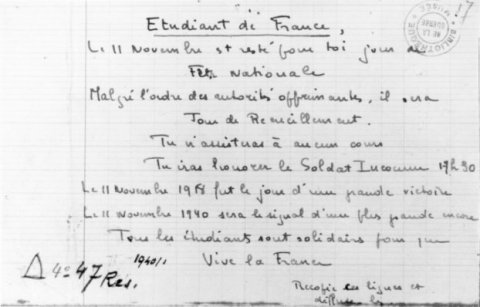 Etudiant de France,
Le 11 Novembre est resté pour toi jour de
Fête Nationale
Malgré l'ordre des autorités opprimantes, il sera
Jour de Recueillement.
Tu n'assisteras à aucun cours
Tu iras honorer le Soldat Inconnu 17h30
Le 11 Novembre 1918 fut le jour d'une grande victoire
Le 11 Novembre 1940 sera le signal d'une plus grande encore
Tous les étudiants sont solidaires pour que
Vive la France
Recopie ces lignes et
diffuse les
Δ 4° 47 Rés. 1940/1
BIBLIOTHÈQUE
MUSÉE
DE LA
GUERRE